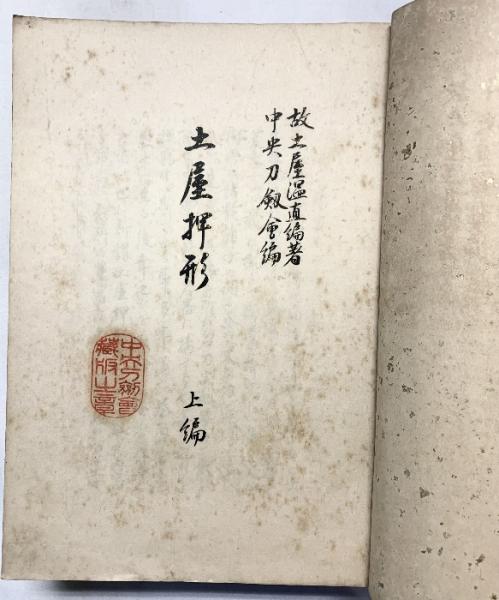 故土屋温直編著
中央刀剱會編
土屋押形
上編
中央刀劍會
藏版之章